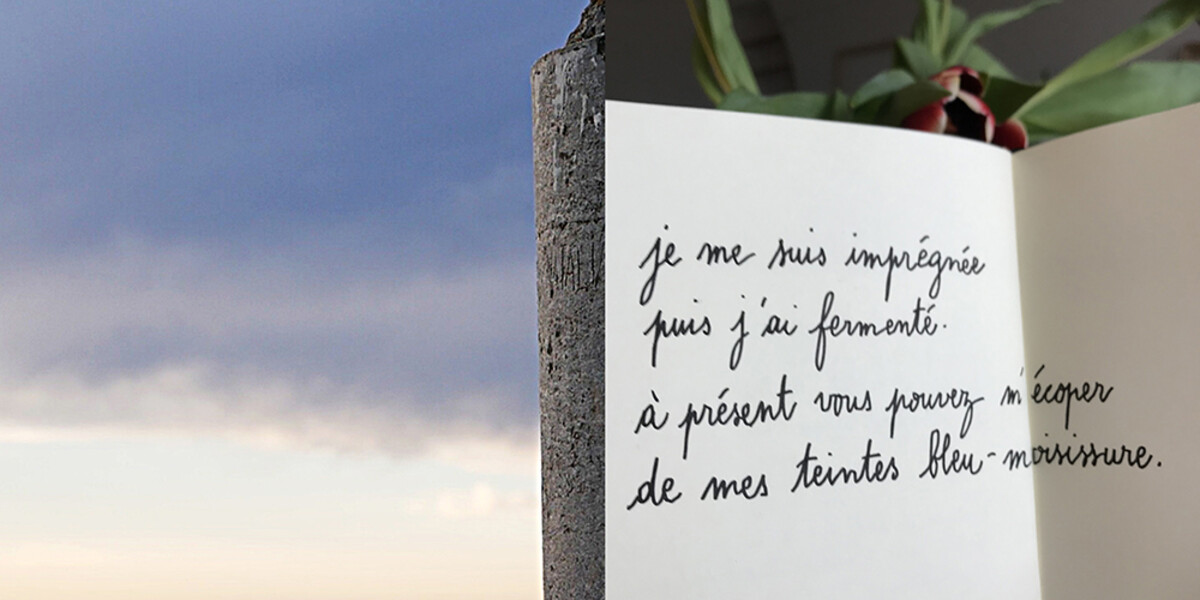 je me suis imprégnée
puis j'ai fermenté.
à présent vous pouvez m'écoper
de mes teintes bleu-moisissure.